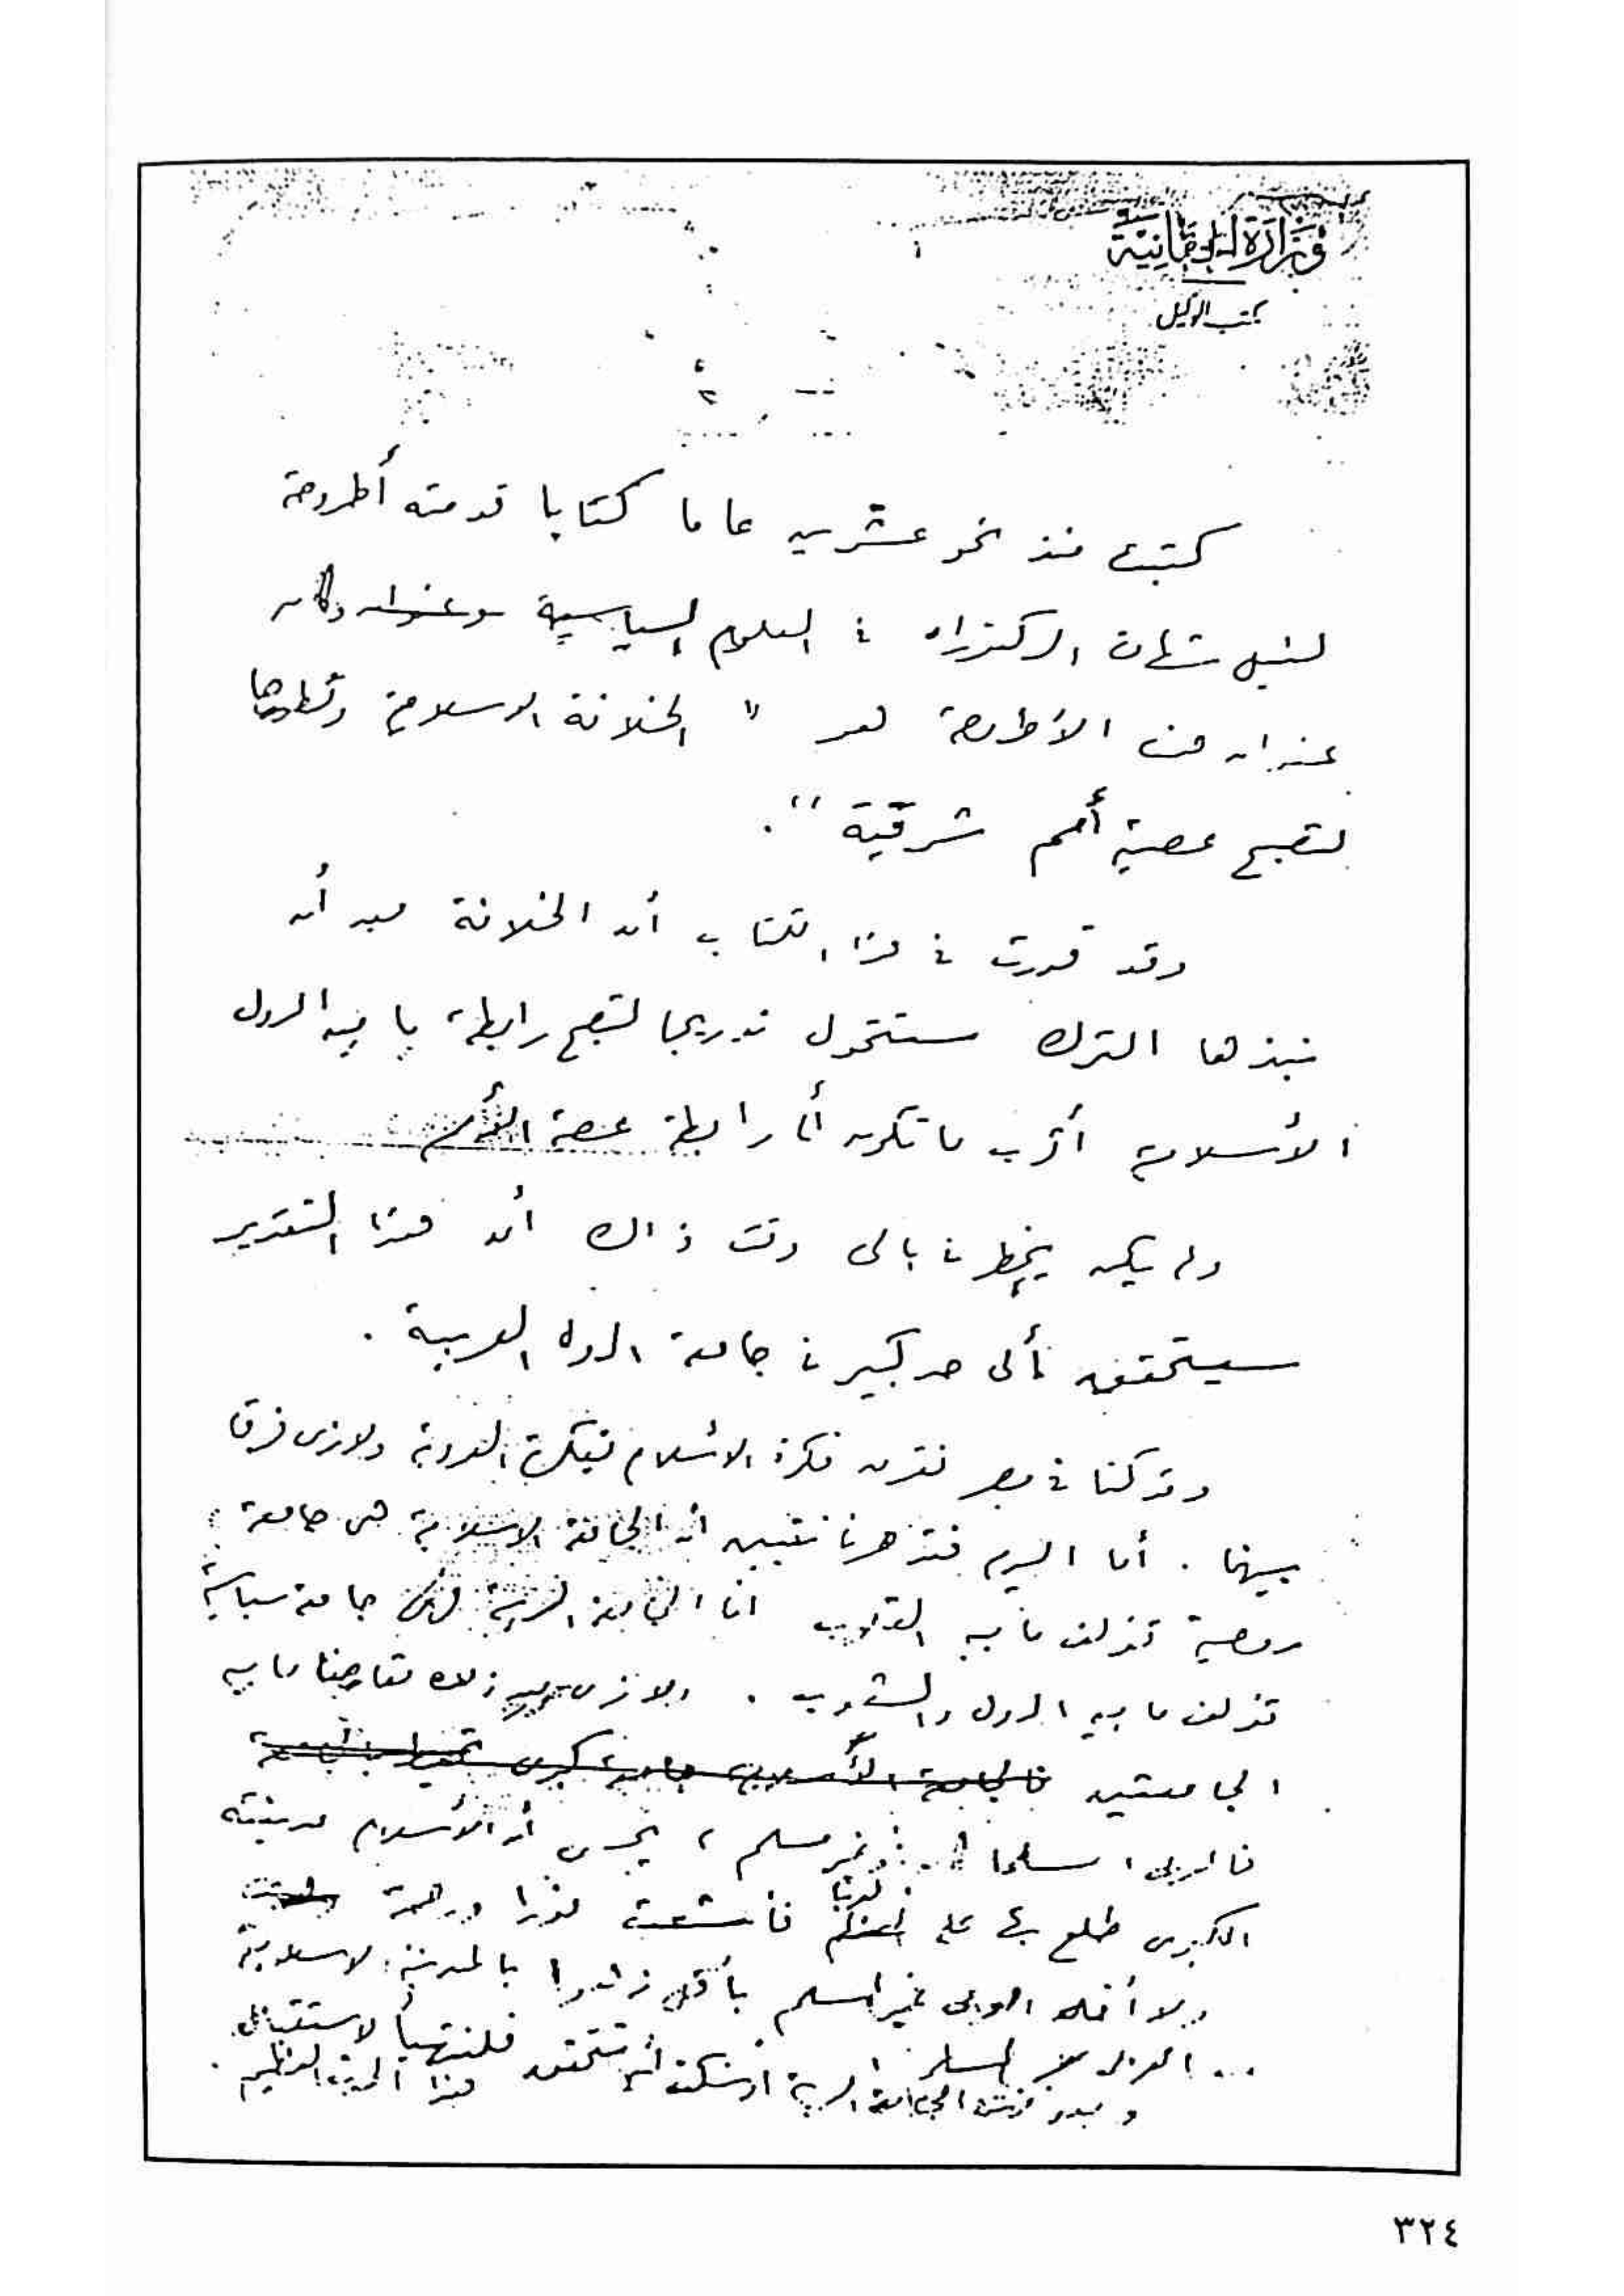 وزارة الحقانية
مكتب الوكيل
كتبت منذ نحو عشرين عاما كتابا قدمته أطروحة
لنيل شهادة الدكتوراه في العلوم السياسية وعنوانه وكان
عنوان هذه الأطروحة هو " الخلافة الاسلامية وتطورها
لتصبح عصبة أمم شرقية ".
وقد قررت في هذا الكتاب أن الخلافة بعد أن
نبذها الترك ستتحول تدريجا لتصبح رابطة ما بين الدول
الأسلامية أقرب ما تكون إلى رابطة عصبة الأمم
ولم يكن يخطر في بالى وقت ذاك أن هذا التقدير
سيتحقق إلى حد كبير في جامعة الدول العربية .
وقد كنا في مصر نقرن فكرة الاسلام بفكرة العروبة ولا نرى فرقا
بينهما . أما اليوم فقد صرنا نتبين أن الجامعة الاسلامية هى جامعة
روحية تؤلف ما بين القلوب أما الجامعة العربية فهى جامعة سياسية
تؤلف ما بين الدول والشعوب . ولا نرى بعد ذلك تعارضا ما بين
الجامعتين فالجامعة الأسلامية جامعة كبرى تحيط بالجامعة
فالعربى ، مسلما أو غير مسلم ، يحس أن الأسلام مدينته
الكبرى طلع بها على العالم فأشعت نورا ورحمة
ولا أخال العربى غير المسلم بأقل زهوا بالمدنية الاسلامية
... العربى المسلم
وبعد فهذه الجامعة العربية أوشكت أن تتحقق فلنتهيأ لاستقبال
هذا الحدث العظيم .
٣٢٤